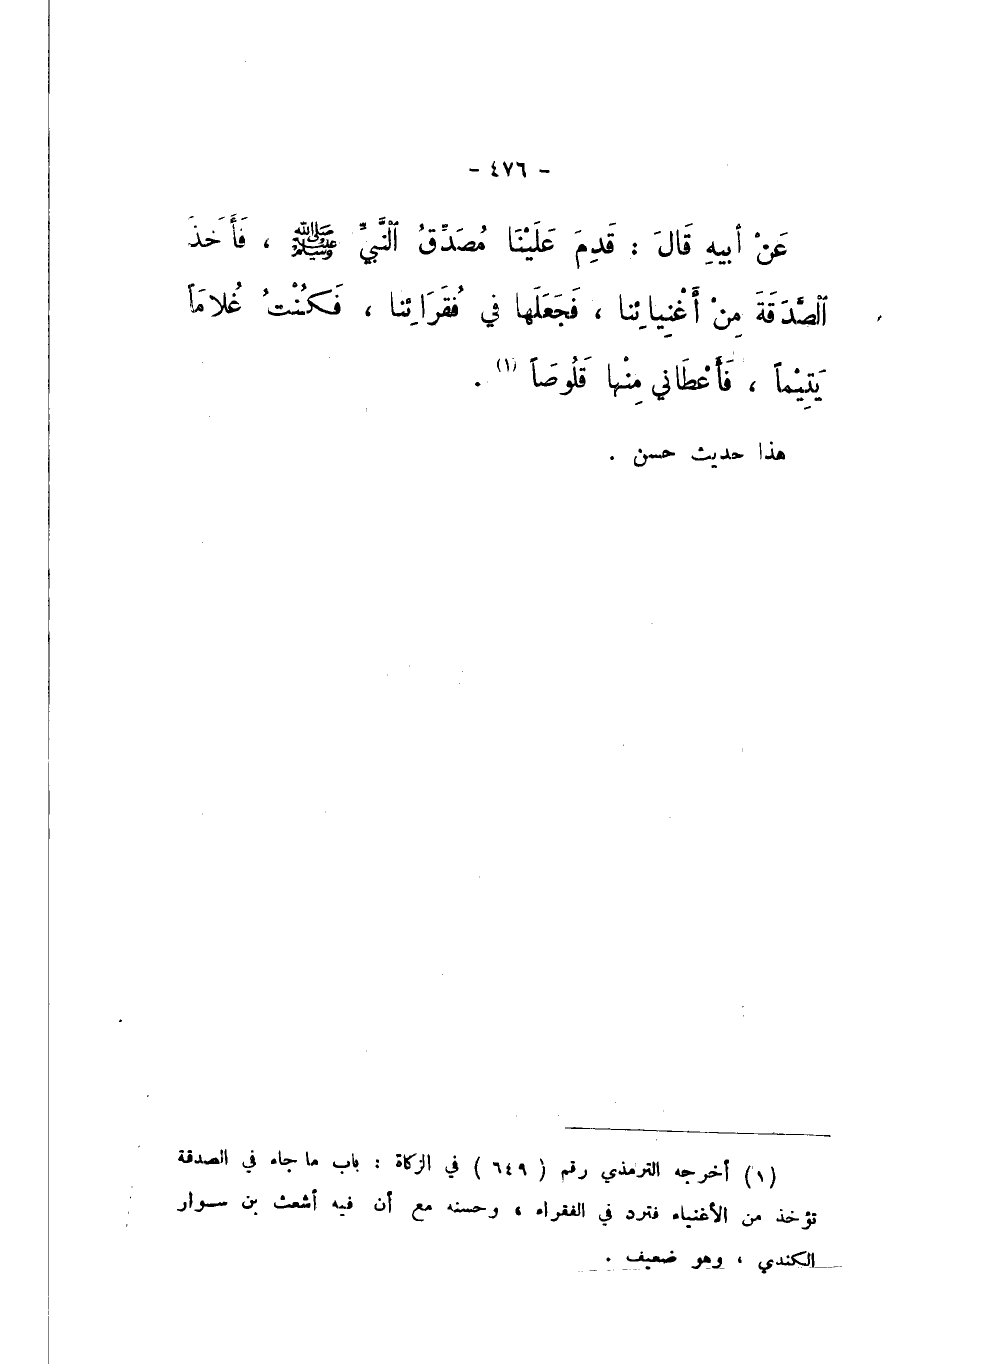 - ٤٧٦ -
عَنْ أَبيهِ قَالَ : قَدِمَ عَلَيْنَا مُصَدِّقُ ٱلنَّبيِّ ﷺ ، فَأَخذَ
ٱلصَّدَقَةَ مِنْ أَغْنِيائِنا ، فَجَعَلَها في فُقَرَائِنا ، فَكُنْتُ غُلامَاً
يَتِيْماً ، فَأَعْطَاني مِنْها قَلُوصَاً (١) .
هذا حديث حسن .
(١) أخرجه الترمذي رقم ( ٦٤٩ ) في الزكاة : باب ما جاء في الصدقة
تؤخذ من الأغنياء فترد في الفقراء ، وحسنه مع أن فيه أشعث بن سوار
الكندي ، وهو ضعيف .